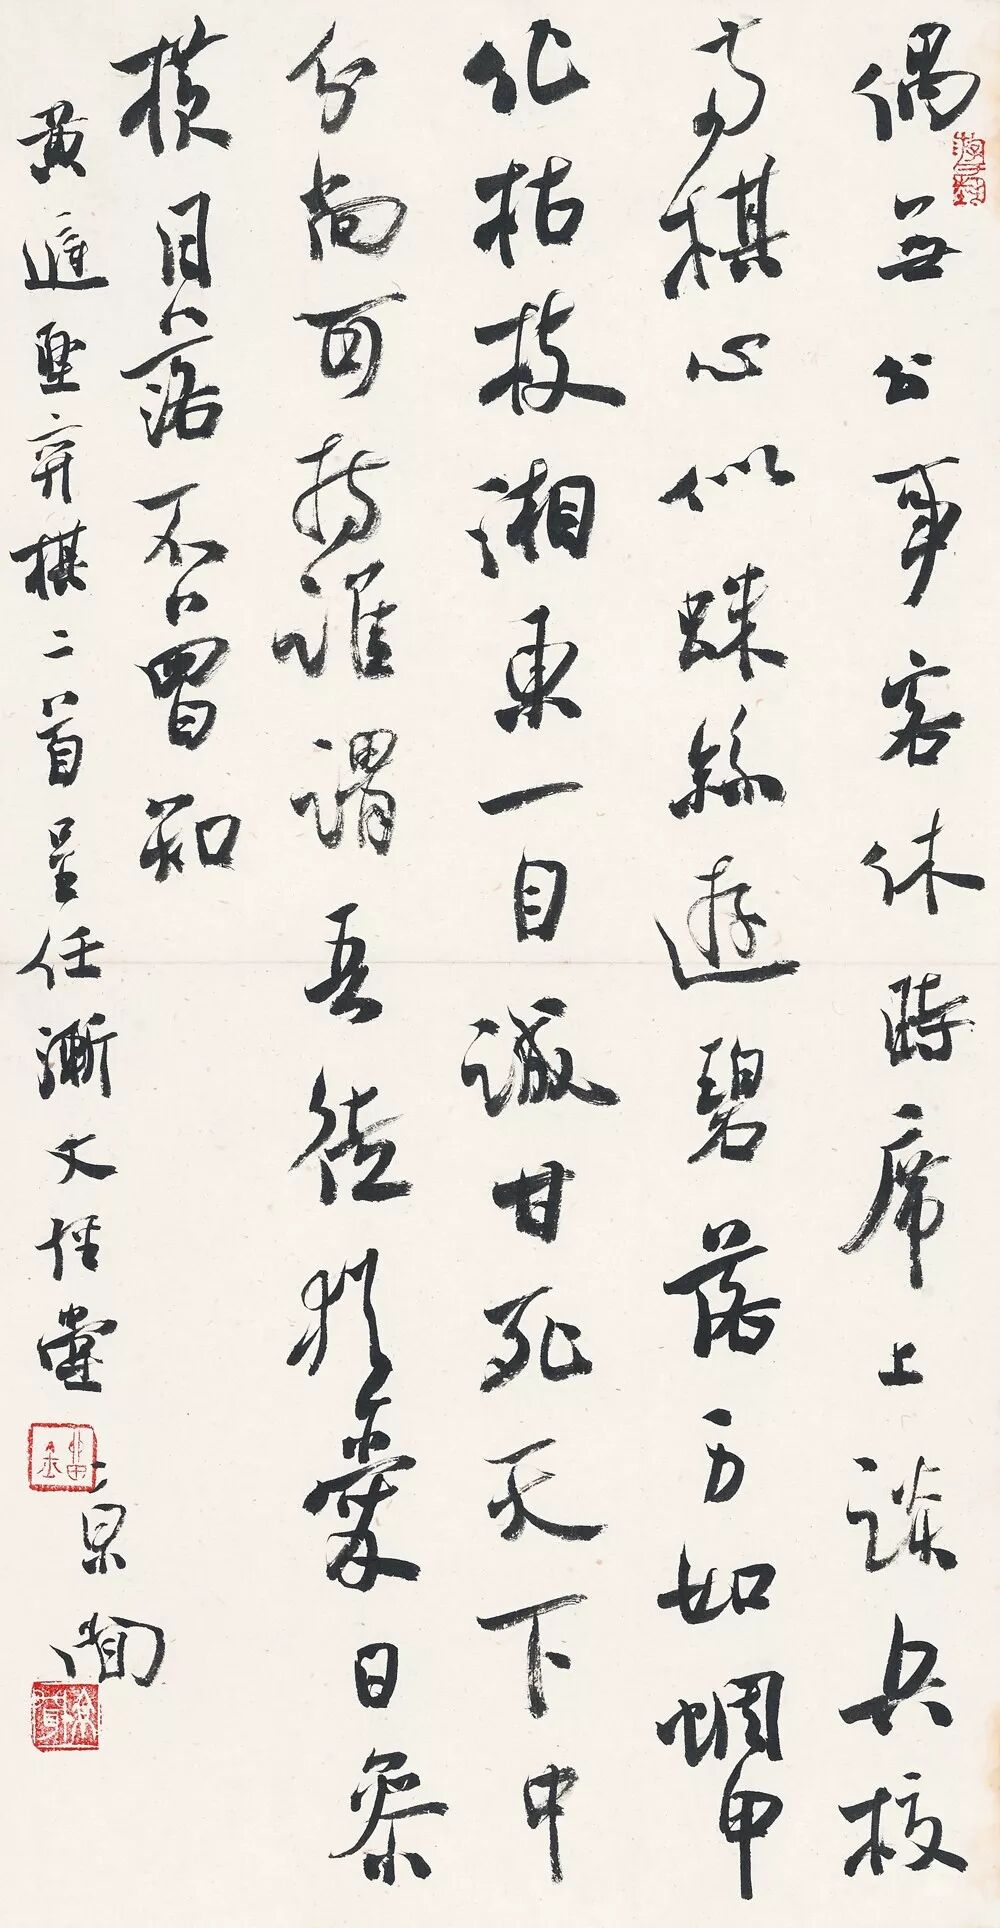 偶無公事客休時席上談兵校
兩棋心似蛛絲遊碧落身如蜩甲
化枯枝湘東一目誠甘死天下中
分尚可持誰謂吾徒猶愛日參
橫月落不曾知
黃庭堅弈棋二首呈任漸文堂景